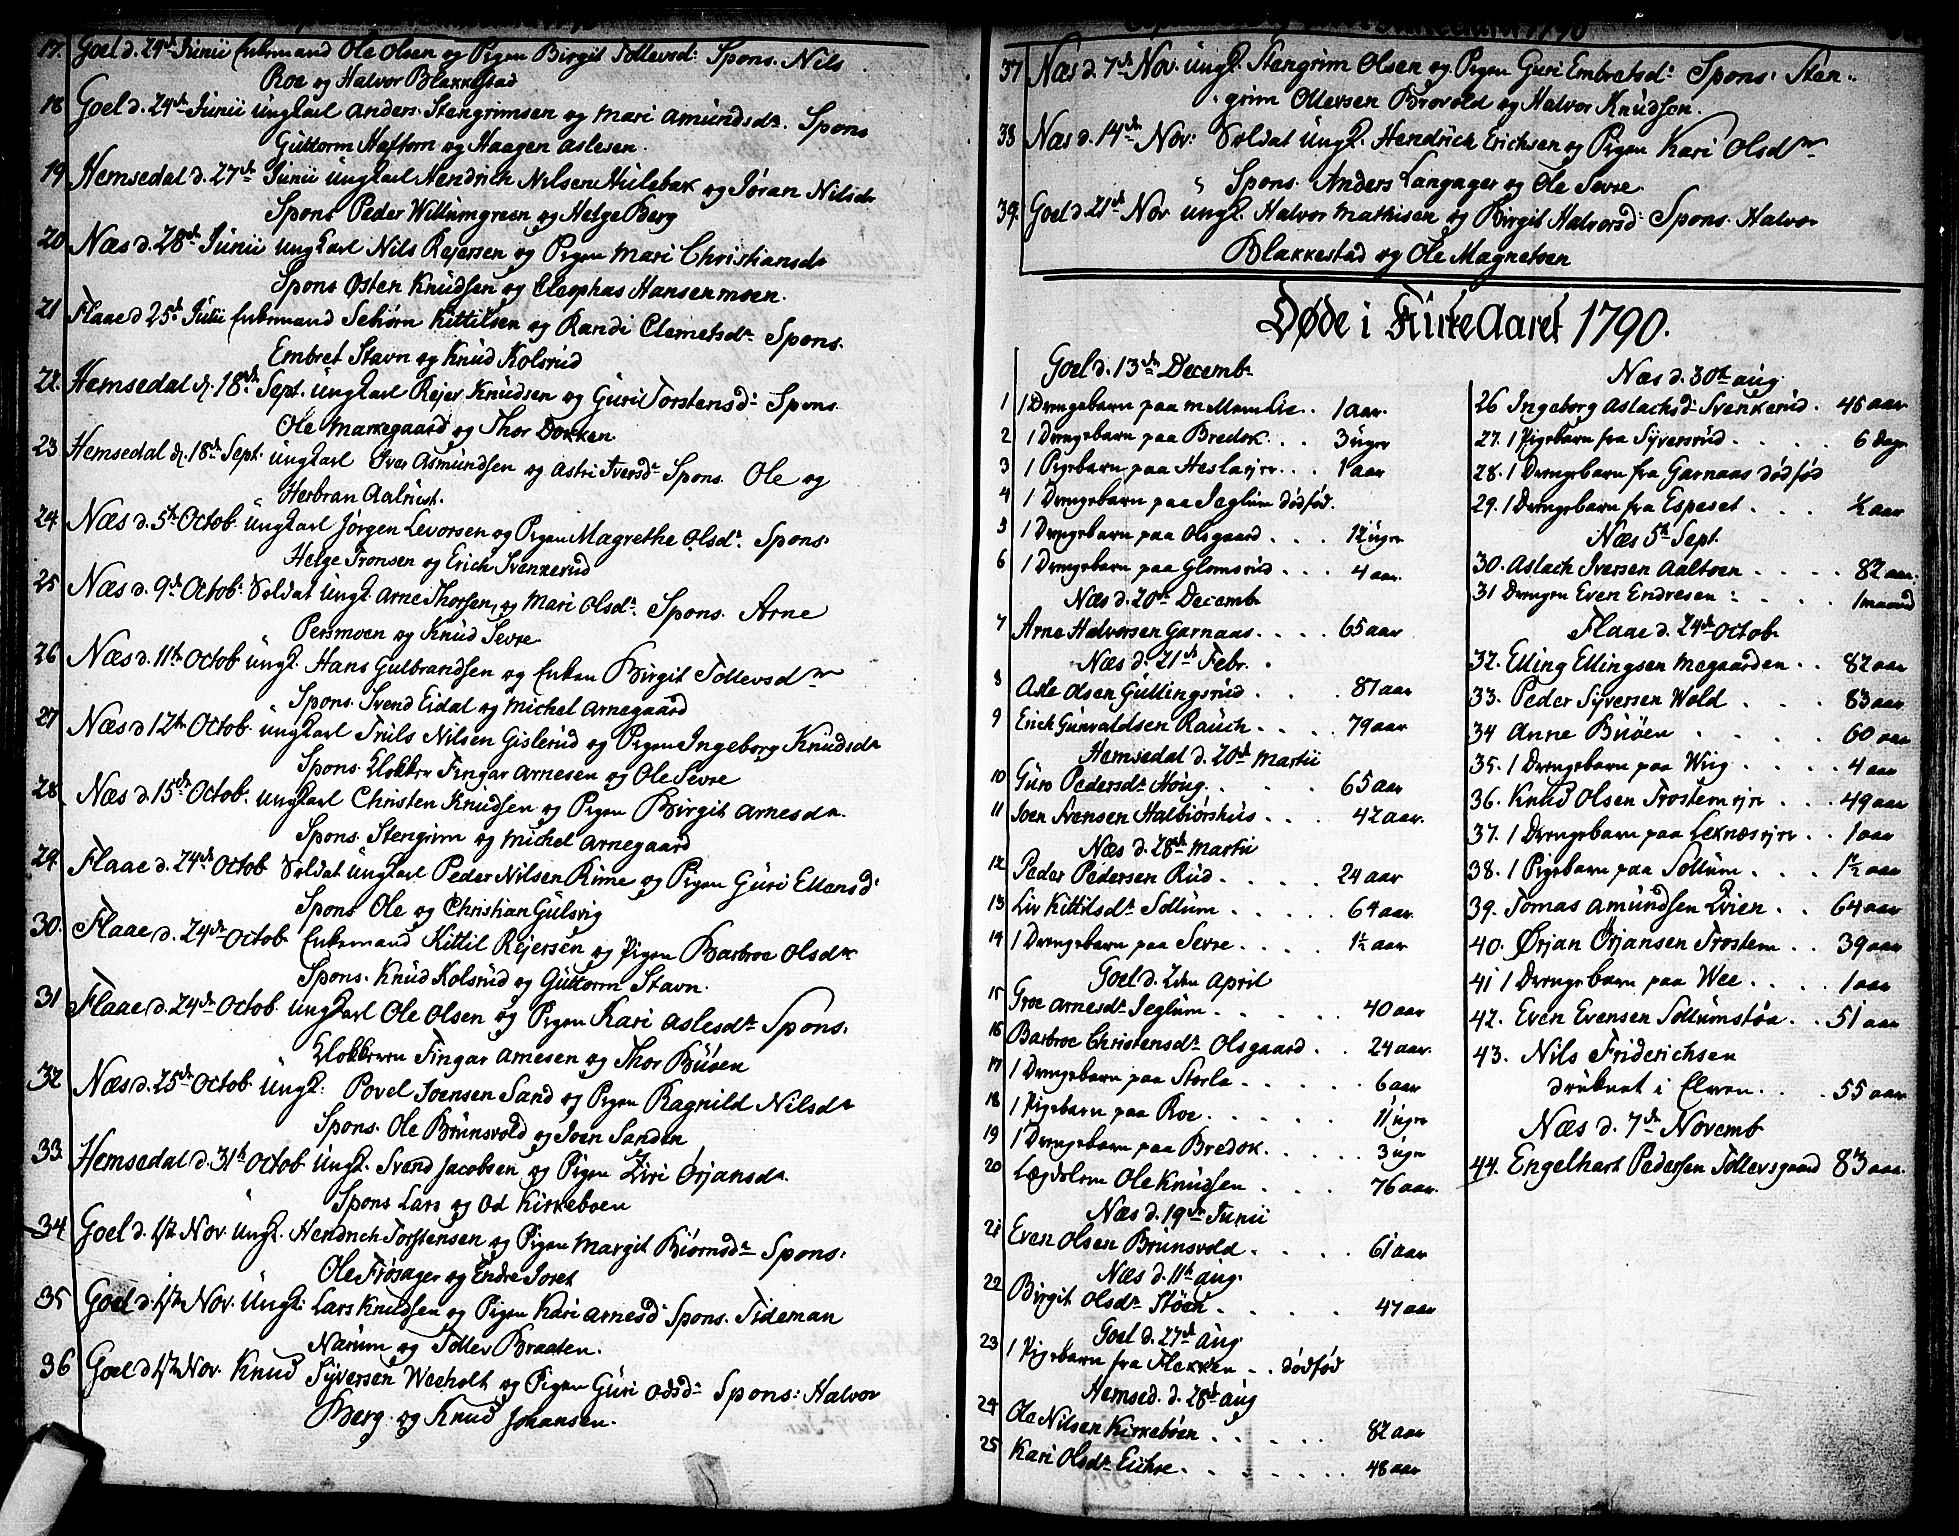 17. Goel d. 24de Junii Enkemand Ole Olsen og Pigen Birgit Tollevsdr: Spons. Nils
Roe og Halvor Blakkestad
18 Goel d. 24de Junii Ungkarl Anders Stengrimsen og Mari Amundsdr. Spons
Guttorm Haftorn og Haagen Aslesen.
19 Hemsedal d. 27de Junii Ungkarl Hendrich Nilsen Hulebak og Jøran Nilsdr
Spons Peder Willumgreen og Helge Berg
20 Næs d. 28de Junii Ungkarl Nils Rejersen og Pigen Mari Christiansdr
Spons Østen Knudsen og Cleophas Hansenmoen.
21 Flaae d 25de Julii Enkemand Sebiørn Kittilsen og Randi Clemetsdr. Spons.
Embret Stavn og Knud Kolsrud
22. Hemsedal d. 18de Sept. Ungkarl Rejer Knudsen og Guri Torstensdr: Spons.
Ole Markegaard og Thor Dokken.
23 Hemsedal d. 18de Sept. Ungkarl Iver Asmundsen og Astri Iversdr Spons. Ole og
Herbran Aalrust.
24. Næs d. 5te Octob. Ungkarl Jørgen Levorsen og Pigen Magrethe Olsdr. Spons.
Helge Tronsen og Erich Svenkerud
25 Næs d. 9de Octob: Soldat Ungk. Arne Thorsen, og Mari Olsdr. Spons. Arne
Persmoen og Knud Sevre
26 Næs d. 11te Octob Ungk. Hans Gulbrandsen og Enken Birgit Tollevsdr
Spons. Svend Eidal og Michel Arnegaard
27 Næs d 12te Octob. Ungkarl Truls Nilsen Gislerud og Pigen Ingeborg Knudsdr
Spons. Klokker Fingar Arnesen og Ole Sevre
28 Næs d. 15de Octob. Ungkarl Christen Knudsen og Pigen Birgit Arnesdr.
Spons. Stengrim og Michel Arnegaard
29. Flaae d. 24de Octob Soldat Ungkarl Peder Nilsen Rime og Pigen Guri Ellensdr
Spons Ole og Christian Gulsvig
30. Flaae d. 24de Octob Enkemand Kittil Rejersen og Pigen Barbroe Olsdr
Spons. Knud Kolsrud og Guttorm Stavn.
31 Flaae d. 24de Octob Ungkarl Ole Olsen og Pigen Kari Aslesdr Spons.
Klokkeren Fingar Arnesen og Thor Buøen
32 Næs d. 25de Octob Ungk: Povel Joensen Sand og Pigen Ragnild Nilsdr
Spons. Ole Brunsvold og Joen Sanden
33. Hemsedal d. 31te Octob Ungk. Svend Jacobsen og Pigen Ziri Ørjansdr.
Spons Lars og Od Kirkeboen
34 Goel d. 1ste Nov. Ungk. Hendrich Torstensen og Pigen Margit Biørnsdr Spons:
Ole Frøsager og Endre Joret
35 Goel d. 1ste Nov. Ungk: Lars Knudsen og Pigen Kari Arnesd: Spons. Tideman
Narum og Tollev Braaten.
36 Goel d 1ste Nov. Knud Syversen Weeholt og Pigen Guri Odsdr Spons: Halvor
Berg og Knud Johansen.
37 Næs d. 7de Nov. Ungk. Stengrim Olsen og Pigen Guri Embretsdr Spons: Sten-
grim Ollevsen Brovold og Halvor Knudsen.
38 Næs d. 14de Nov: Soldat Ungk. Hendrich Erichsen og Pigen Kari Olsdr
Spons. Anders Langager og Ole Sevre
39. Goel d 21de Nov Ungk. Halvor Mathisen og Birgit Halvorsd: Spons. Halvor
Blakkestad og Ole Magnetoen
Døde i Kirke Aaret 1790.
Goel d. 13de Decembr
1 1 Drengebarn paa Mellemlie.. 1 aar.
2 1 Drengebarn paa Bredok... 3 uger
3 1 Pigebarn paa Heslaejre... 1 aar
4 1 Drengebarn paa Jeglum dødfød.
5 1 Drengebarn paa Olsgaard... 12 uger
6 1 Drengebarn paa Glomsrud... 4 aar.
Næs d. 20de Decemb
7 Arne Halvorsen Garnaas.... 65 aar
Næs d. 21de Febr.
8 Asle Olsen Gullingsrud... 87 aar
9 Erich Gunvaldsen Rauch.... 79 aar
Hemsedal d. 20de Martii
10 Guro Pedersdr Houg..... 65 aar
11 Joen Svensen Halbiørshus... 42 aar.
Næs d. 28de Martii
12 Peder Pedersen Rud.... 24 aar
13 Liv Kittilsdr Sollum..... 64 aar
14 1 Drengebarn paa Sevre.... 1½ aar
Goel d. 2den April
15 Groe Arnesdr Jeglum...... 40 aar
16 Barbroe Christensdr Olsgaard.. 24 aar.
17 1 Drengebarn paa Storla..... 6 aar
18 1 Pigebarn paa Roe...... 11 uger
19 1 Drengebarn paa Bredok..... 3 uger
20 Lægdslem Ole Knudsen.... 76 aar.
Næs d. 19de Junii
21 Even Olsen Brunsvold.... 61 aar
Næs d. 11te Aug.
22 Birgit Olsdr Støen...... 47 aar
Goel d. 27de Aug
23 1 Pigebarn fra Flekken... dødfød
Hemsed. d. 28de Aug
24 Ole Nilsen Kirkebøen..... 82 aar
25 Kari Olsdr Eikre....... 48 aar
Næs d. 30te Aug
26 Ingeborg Aslachsdr Svenkerud. 45 aar
27. 1 Pigebarn fra Syversrud.... 6 dage
28. 1 Drengebarn fra Garnaas dødfød
29. 1 Drengebarn fra Espeset.... ½ aar
Næs 5te Sept.
30. Aslach Iversen Aaltoen.... 82 aar.
31 Drengen Even Endresen.... 1 maaned
Flaae d. 24de Octob
32. Elling Ellingsen Megaarden.. 82 aar
33. Peder Syversen Wold.... 83 aar
34 Anne Buøen..... 60 aar
35. 1 Drengebarn paa Wiig.... 4 aar
36. Knud Olsen Trostemejre.. 49 aar
37. 1 Drengebarn paa Leknæsejre.. 1 aar
38. 1 Pigebarn paa Sollum... 1½ aar
39. Tomas Amundsen Lvien.. 64 aar
40. Ørjan Ørjansen Trostem.. 39 aar
41 1 Drengebarn paa Wee.... 1 aar
42. Even Evensen Sollumstøa.. 51 aar
43. Nils Friderichsen
druknet i Elven.... 55 aar
Næs d. 7de Novemb
44. Engelhart Pedersen Tollevsgaard 83 aar.